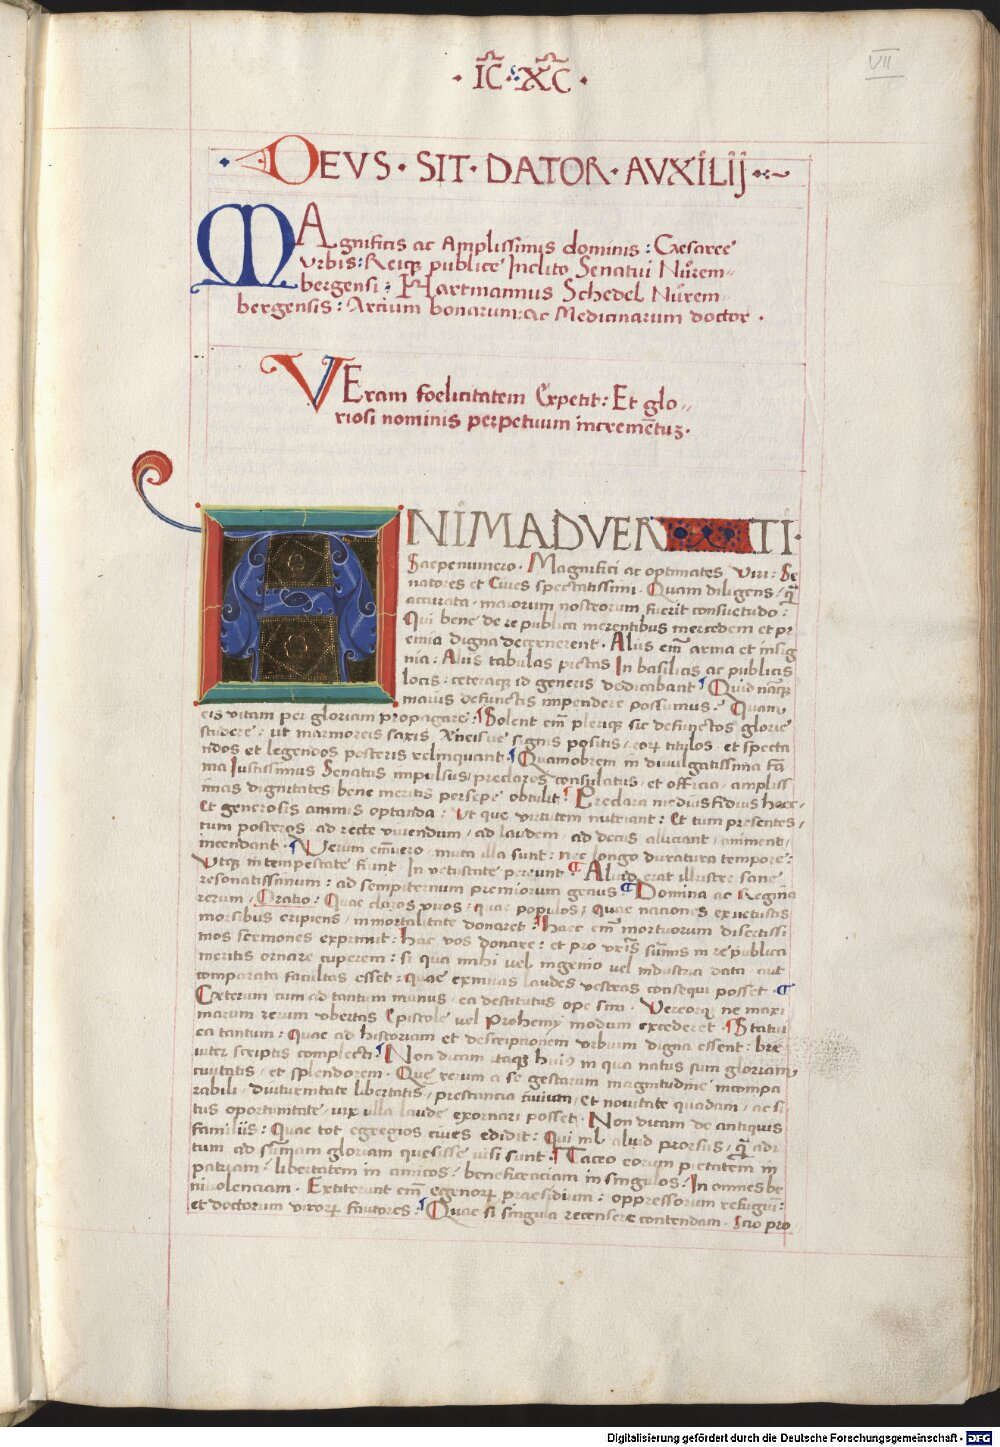 · IC · XC ·
VII
· DEVS · SIT · DATOR · AVXILIJ ·
MAgnificis ac Amplissimis dominis : Caesaree
Vrbis : Reiqꝫ publice Inclito Senatui Nůrem-
bergensi : Hartmannus Schedel Nůrem-
bergensis : Artium bonarum : ac Medicinarum doctor .
VEram foelicitatem Expetit : Et glo-
riosi nominis perpetuum incremētuꝫ .
ANIMADVERTI ·
Saepenumero . Magnifici ac optimates viri : Se
natores et Cives spectatissimi . Quam diligens / qȝ
accurata . maiorum nostrorum fuerit consuetudo :
Qui bene de re publica merentibus mercedem et pr
emia digna decernerent . Alijs em̄ arma et insig
nia : Alijs tabulas pictas In basilicis ac publicis
locis : ceteraqꝫ id generis dedicabant Quid nāqꝫ
maius defunctis impendere possumus : Quam
eis vitam per gloriam propagare : Solent em̄ pleriqꝫ sic defunctos glorie
studere : ut marmoreis saxis Aeneisue signis positis / eoꝝ titulos . et specta
ndos et legendos posteris relinquant . Quamobrem in divulgatissima fa
ma Justissimus Senatus impulsus / preclaros consulatus / et officia . ampliss
imas dignitates bene meritis persepe obtulit Preclara medius fidius haec .
Et generosis animis optanda : Ut que virtutem nutriant : Et tum presentes /
tum posteros . ad recte vivendum / ad laudem / ad decus alliciant / animent /
incendant . Verum em̄vero / muta illa sunt : nec longo duratura tempore :
Utqꝫ in tempestate fiunt . In vetustate pereunt . Aliud erat illustre sane
resonatissimum : ad sempiternum premiorum genus Domina ac Regina
rerum / Oratio : Quae claros viros : quae populos ; Quae naciones ex vetustis
morsibus eripiens / immortalitate donaret Haec em̄ mortuorum disertissi
mos sermones exprimit : Hac vos donare : et pro vr̄is sūmis in re publica
meritis ornare cuperem : si qua mihi vel ingenio vel industria data . aut
comparata facultas esset : quae eximias laudes vestras consequi posset .
Ceterum cum ad tantum munus . ea destitutus ope sim . Vereorqꝫ ne maxi
marum rerum ubertas Epistole vel Prohemy modum excederet . Statui
ea tantum : Quae ad historiam et descriptionem urbium digna essent : bre
viter scriptis complecti Non dicam itaqꝫ huiꝰ in qua natus sum gloriam
civitatis / et splendorem . Que rerum a se gestarum magnitudine incompa
rabili / diuturnitate libertatis / prestancia civium / et novitate quadam / ac si
tus oportunitate vix ulla laude exornari posset . Non dicam de antiquis
familiis : Quae tot egregios cives edidit : Qui nil aliud prorsus / qȝ adi
tum ad sūmam gloriam quesisse visi sunt . Taceo eorum pietatem in
patriam / libertatem in amicos / beneficenciam in singulos / In omnes be
nivolenciam . Extiterunt em̄ egenoꝝ praesidium : oppressorum refugiū :
et doctorum viroꝝ fautores : Quae si singula recensere contendam . Scio pro
Digitalisierung gefördert durch die Deutsche Forschungsgemeinschaft - DFG